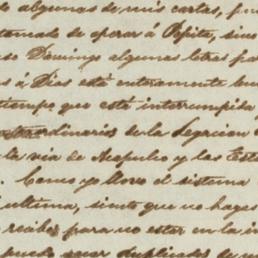 de algunas de mis cartas, pues
tomado de operar á Pepita, sino
ese Domingo algunas letras pa
as á Dios está enteramente bue
tiempo que está interrumpida
extraordinarios de la Legacion
la via de Acapulco y las
Como yo llevo el sistema
ultima, siento que no hayas
recibes para no estar en la in
puede haber duplicados